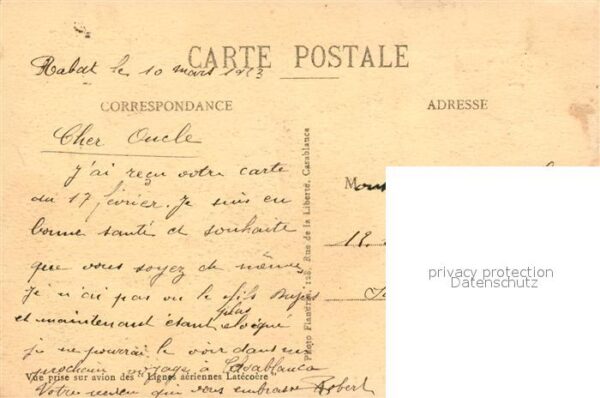 CARTE POSTALE
Rabat le 10 mars
CORRESPONDANCE
ADRESSE
Cher Oncle
J'ai reçu votre carte
du 17 février. Je suis en
bonne santé et souhaite
que vous soyez de même
Je n'ai pas vu le fils
plus
et maintenant étant éloigné
je ne pourrai le voir dans un
prochain voyage à Casablanca
Vue prise sur avion des "Lignes aériennes Latécoère"
Votre neveu qui vous embrasse Robert
Photo Flandrin, Rue de la Liberté, Casablanca
19
privacy protection
Datenschutz